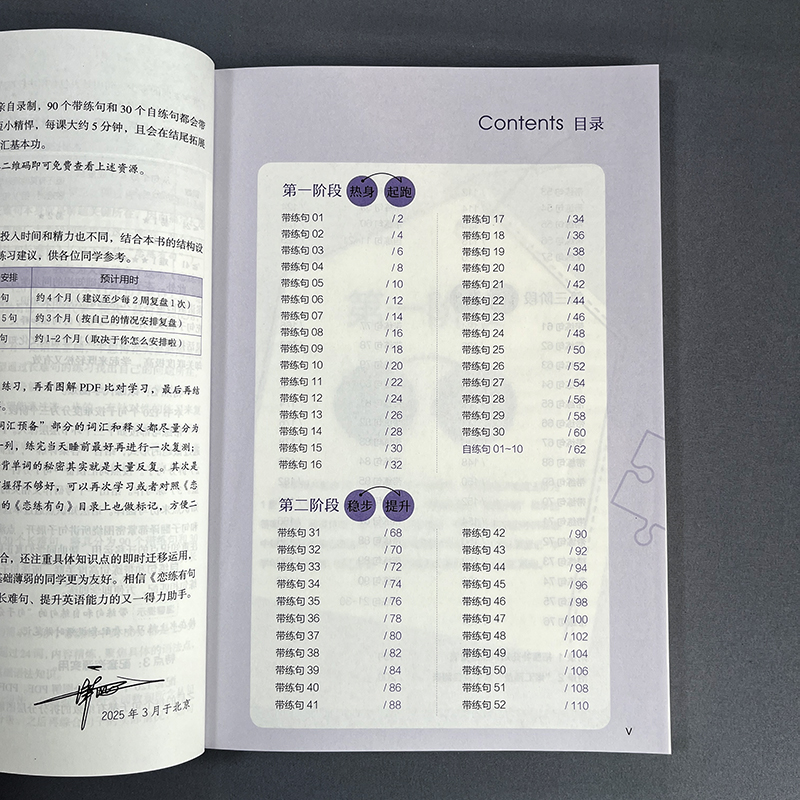 亲自录制，90 个带练句和 30 个自练句都会带
短小精悍，每课大约 5 分钟，且会在结尾拓展
汇基本功。
二维码即可免费查看上述资源。
投入时间和精力也不同，结合本书的结构设
练习建议，供各位同学参考。
安排 预计用时
句 约 4 个月（建议至少每 2 周复盘 1 次）
5 句 约 3 个月（按自己的情况安排复盘）
句 约 1-2 个月（取决于你怎么安排啦）
练习，再看图解 PDF 比对学习，最后再练
词汇预备”部分的词汇和释义都尽量分为
一列，练完当天睡前最好再进行一次复测；
背单词的秘密其实就是大量反复。其次是
握得不够好，可以再次学习或者对照《恋
的《恋练有句》目录上也做标记，方便二
合，还注重具体知识点的即时迁移运用，
基础薄弱的同学更为友好。相信《恋练有句
长难句、提升英语能力的又一得力助手。
2025 年 3 月于北京
Contents 目录
第一阶段 热身 起跑
带练句 01 / 2
带练句 02 / 4
带练句 03 / 6
带练句 04 / 8
带练句 05 / 10
带练句 06 / 12
带练句 07 / 14
带练句 08 / 16
带练句 09 / 18
带练句 10 / 20
带练句 11 / 22
带练句 12 / 24
带练句 13 / 26
带练句 14 / 28
带练句 15 / 30
带练句 16 / 32
带练句 17 / 34
带练句 18 / 36
带练句 19 / 38
带练句 20 / 40
带练句 21 / 42
带练句 22 / 44
带练句 23 / 46
带练句 24 / 48
带练句 25 / 50
带练句 26 / 52
带练句 27 / 54
带练句 28 / 56
带练句 29 / 58
带练句 30 / 60
自练句 01~10 / 62
第二阶段 稳步 提升
带练句 31 / 68
带练句 32 / 70
带练句 33 / 72
带练句 34 / 74
带练句 35 / 76
带练句 36 / 78
带练句 37 / 80
带练句 38 / 82
带练句 39 / 84
带练句 40 / 86
带练句 41 / 88
带练句 42 / 90
带练句 43 / 92
带练句 44 / 94
带练句 45 / 96
带练句 46 / 98
带练句 47 / 100
带练句 48 / 102
带练句 49 / 104
带练句 50 / 106
带练句 51 / 108
带练句 52 / 110
V